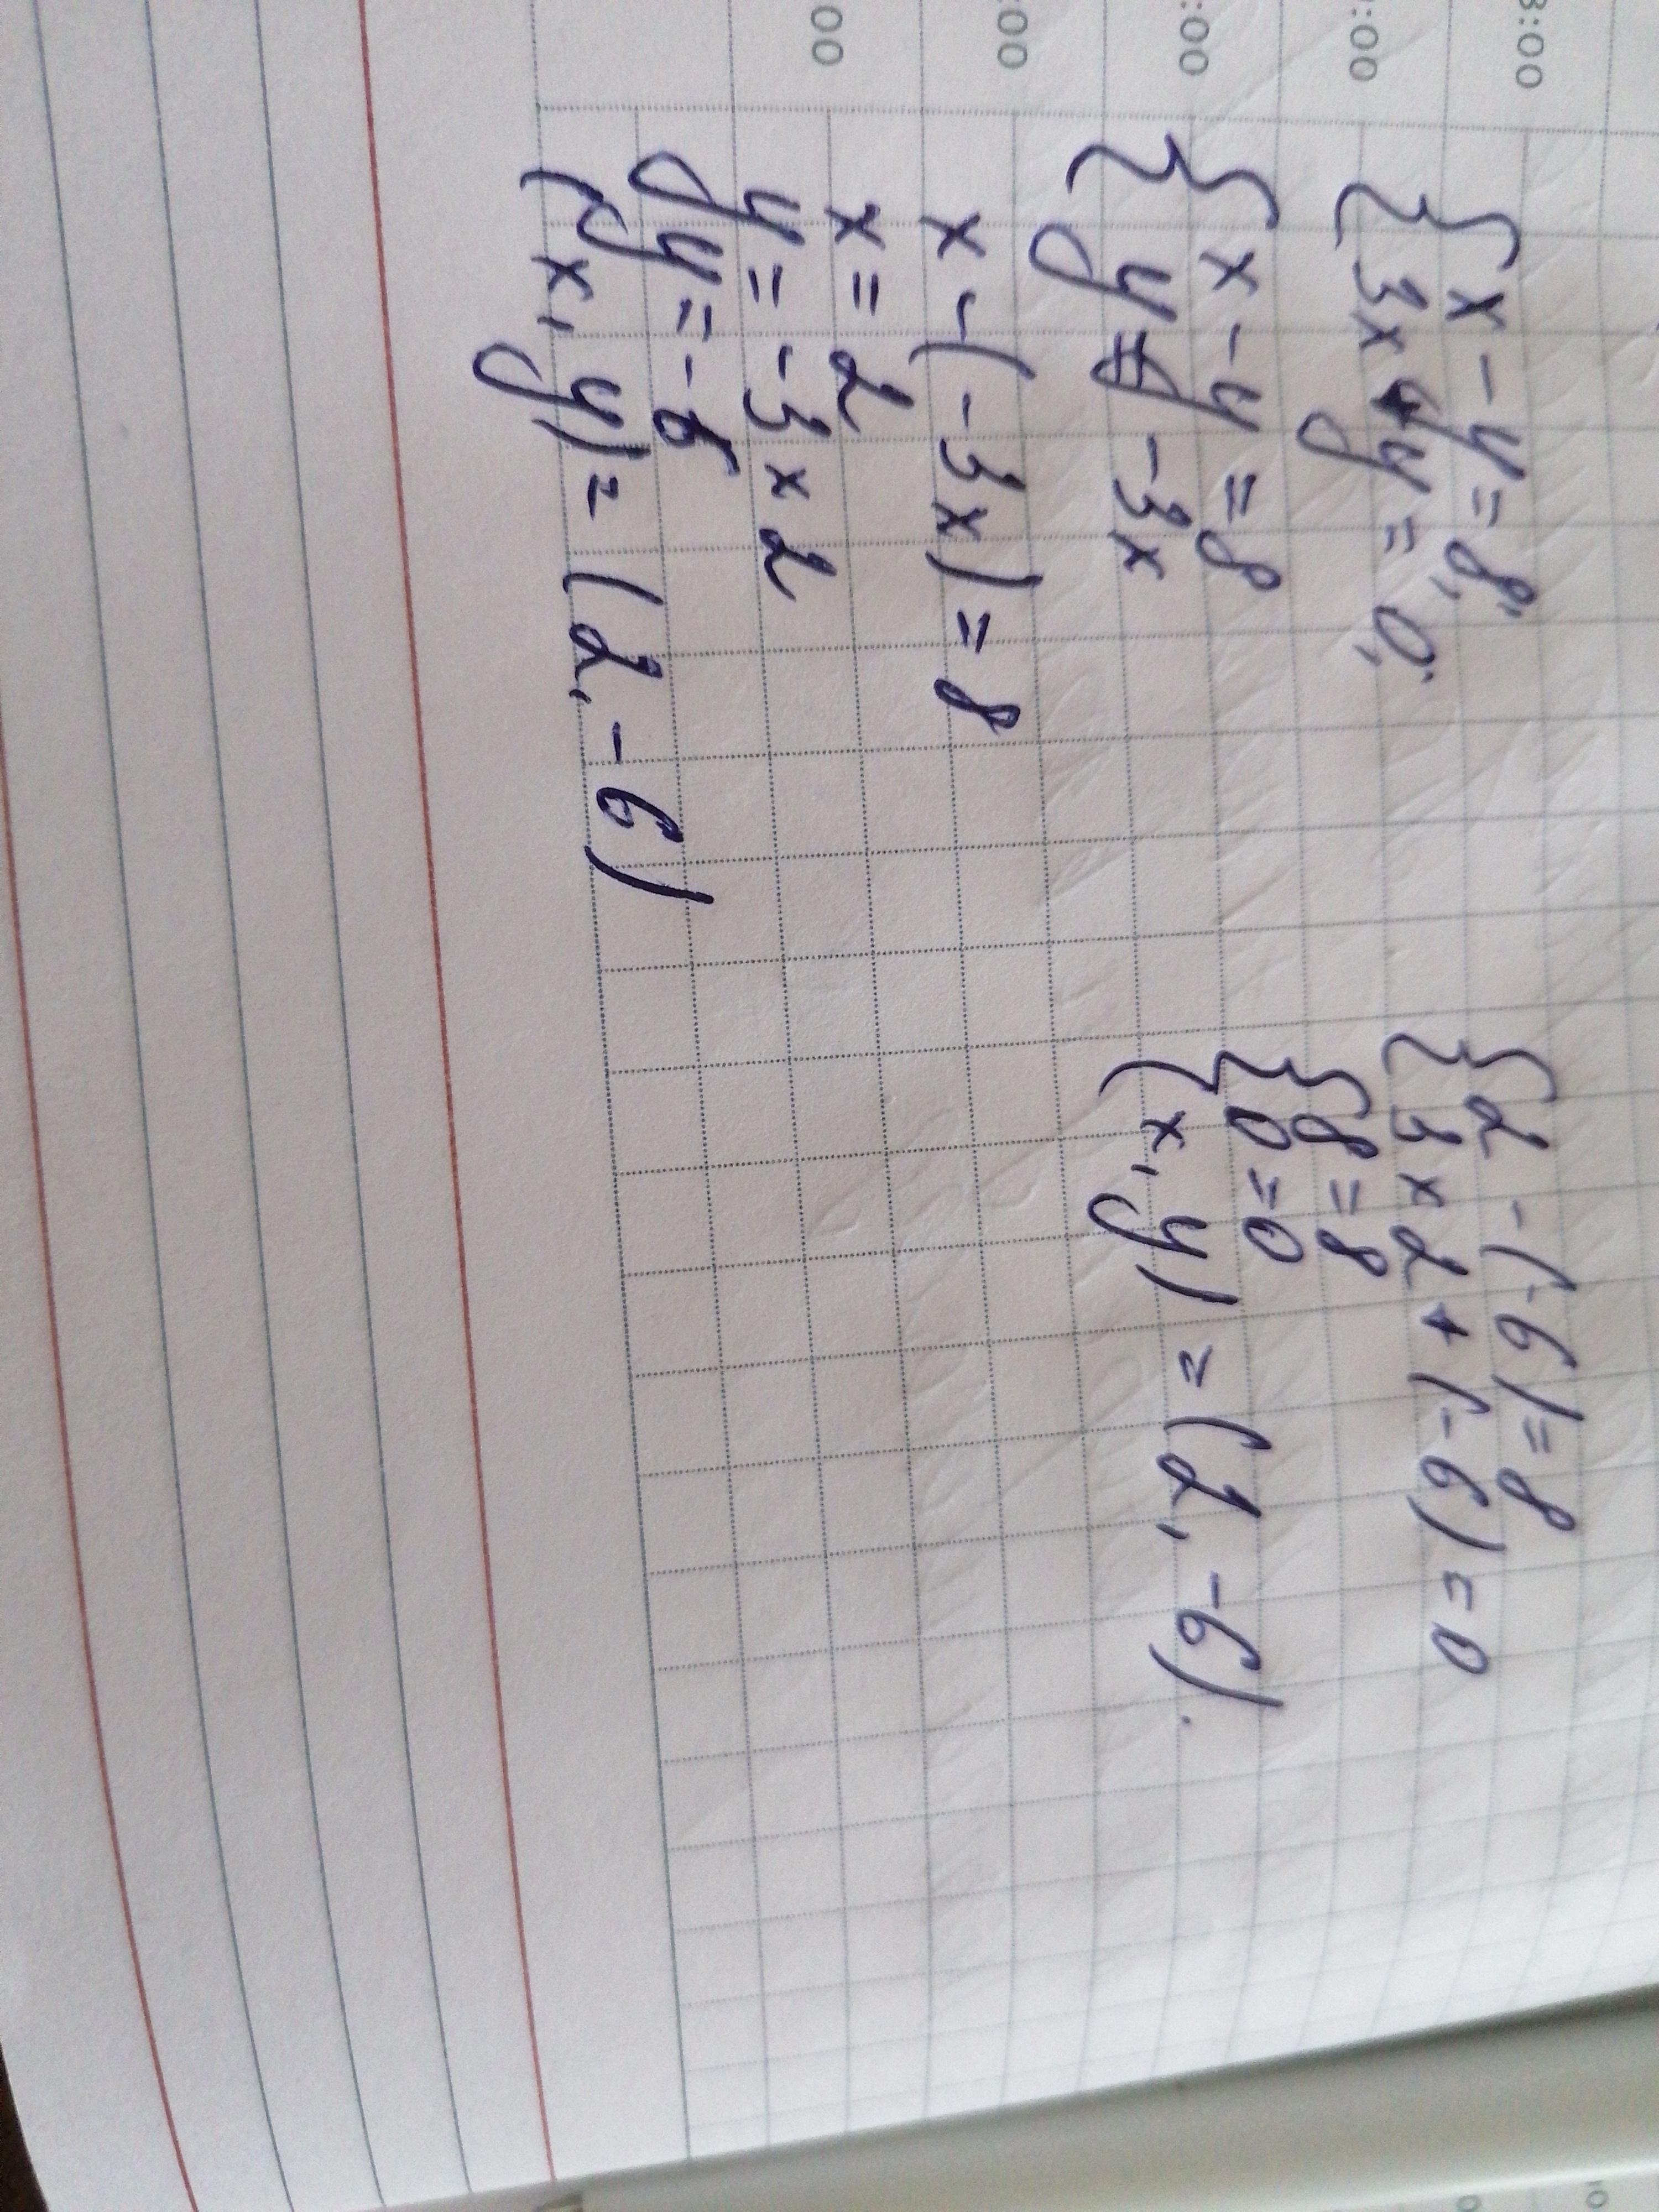 8:00
:00
:00
:00
00
{x - y = 8;
{3x + y = 0;
{x - y = 8
{y = -3x
x - (-3x) = 8
x = 2
y = -3 x 2
y = -6
(x, y) = (2, -6)
{2 - (-6) = 8
{3 x 2 + (-6) = 0
{8 = 8
{0 = 0
(x, y) = (2, -6).